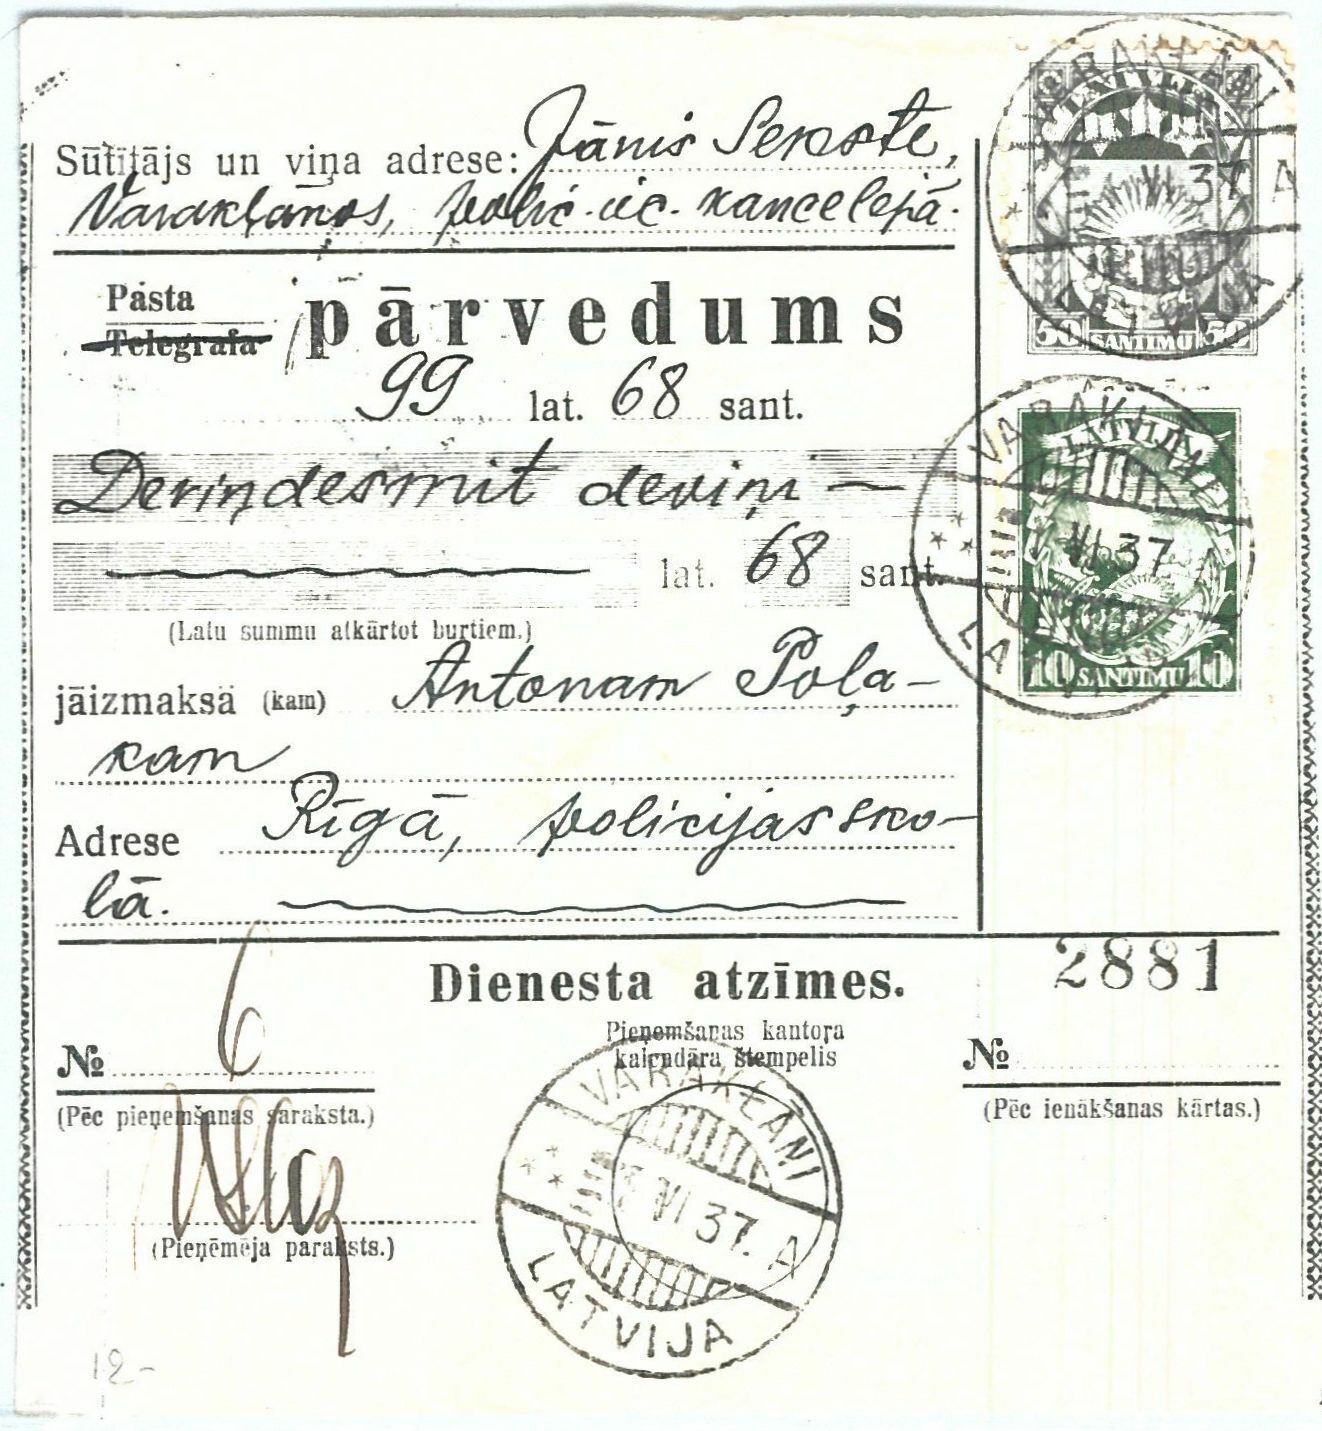 Sūtītājs un viņa adrese: Jānis
Varakļānos, polic. iec. kancelejā.
Pasta
Telegrafa
pārvedums
99 lat. 68 sant.
Deviņdesmit deviņi —
lat. 68 sant.
(Latu summu atkārtot burtiem.)
jāizmaksā (kam) Antonam Poļa-
kam
Adrese Rīgā, policijas sko-
lā.
VARAKĻĀNI
VI 37 A
LATVIJA
50 SANTIMU 50
VARAKĻĀNI
LATVIJA
VI 37 A
LATVIJA
10 SANTIMU 10
Dienesta atzīmes.
2881
№ 6
(Pēc pieņemšanas saraksta.)
(Pieņēmēja paraksts.)
Pieņemšanas kantora
kalendāra štempelis
VARAKĻĀNI
VI 37. A
LATVIJA
№
(Pēc ienākšanas kārtas.)
12-